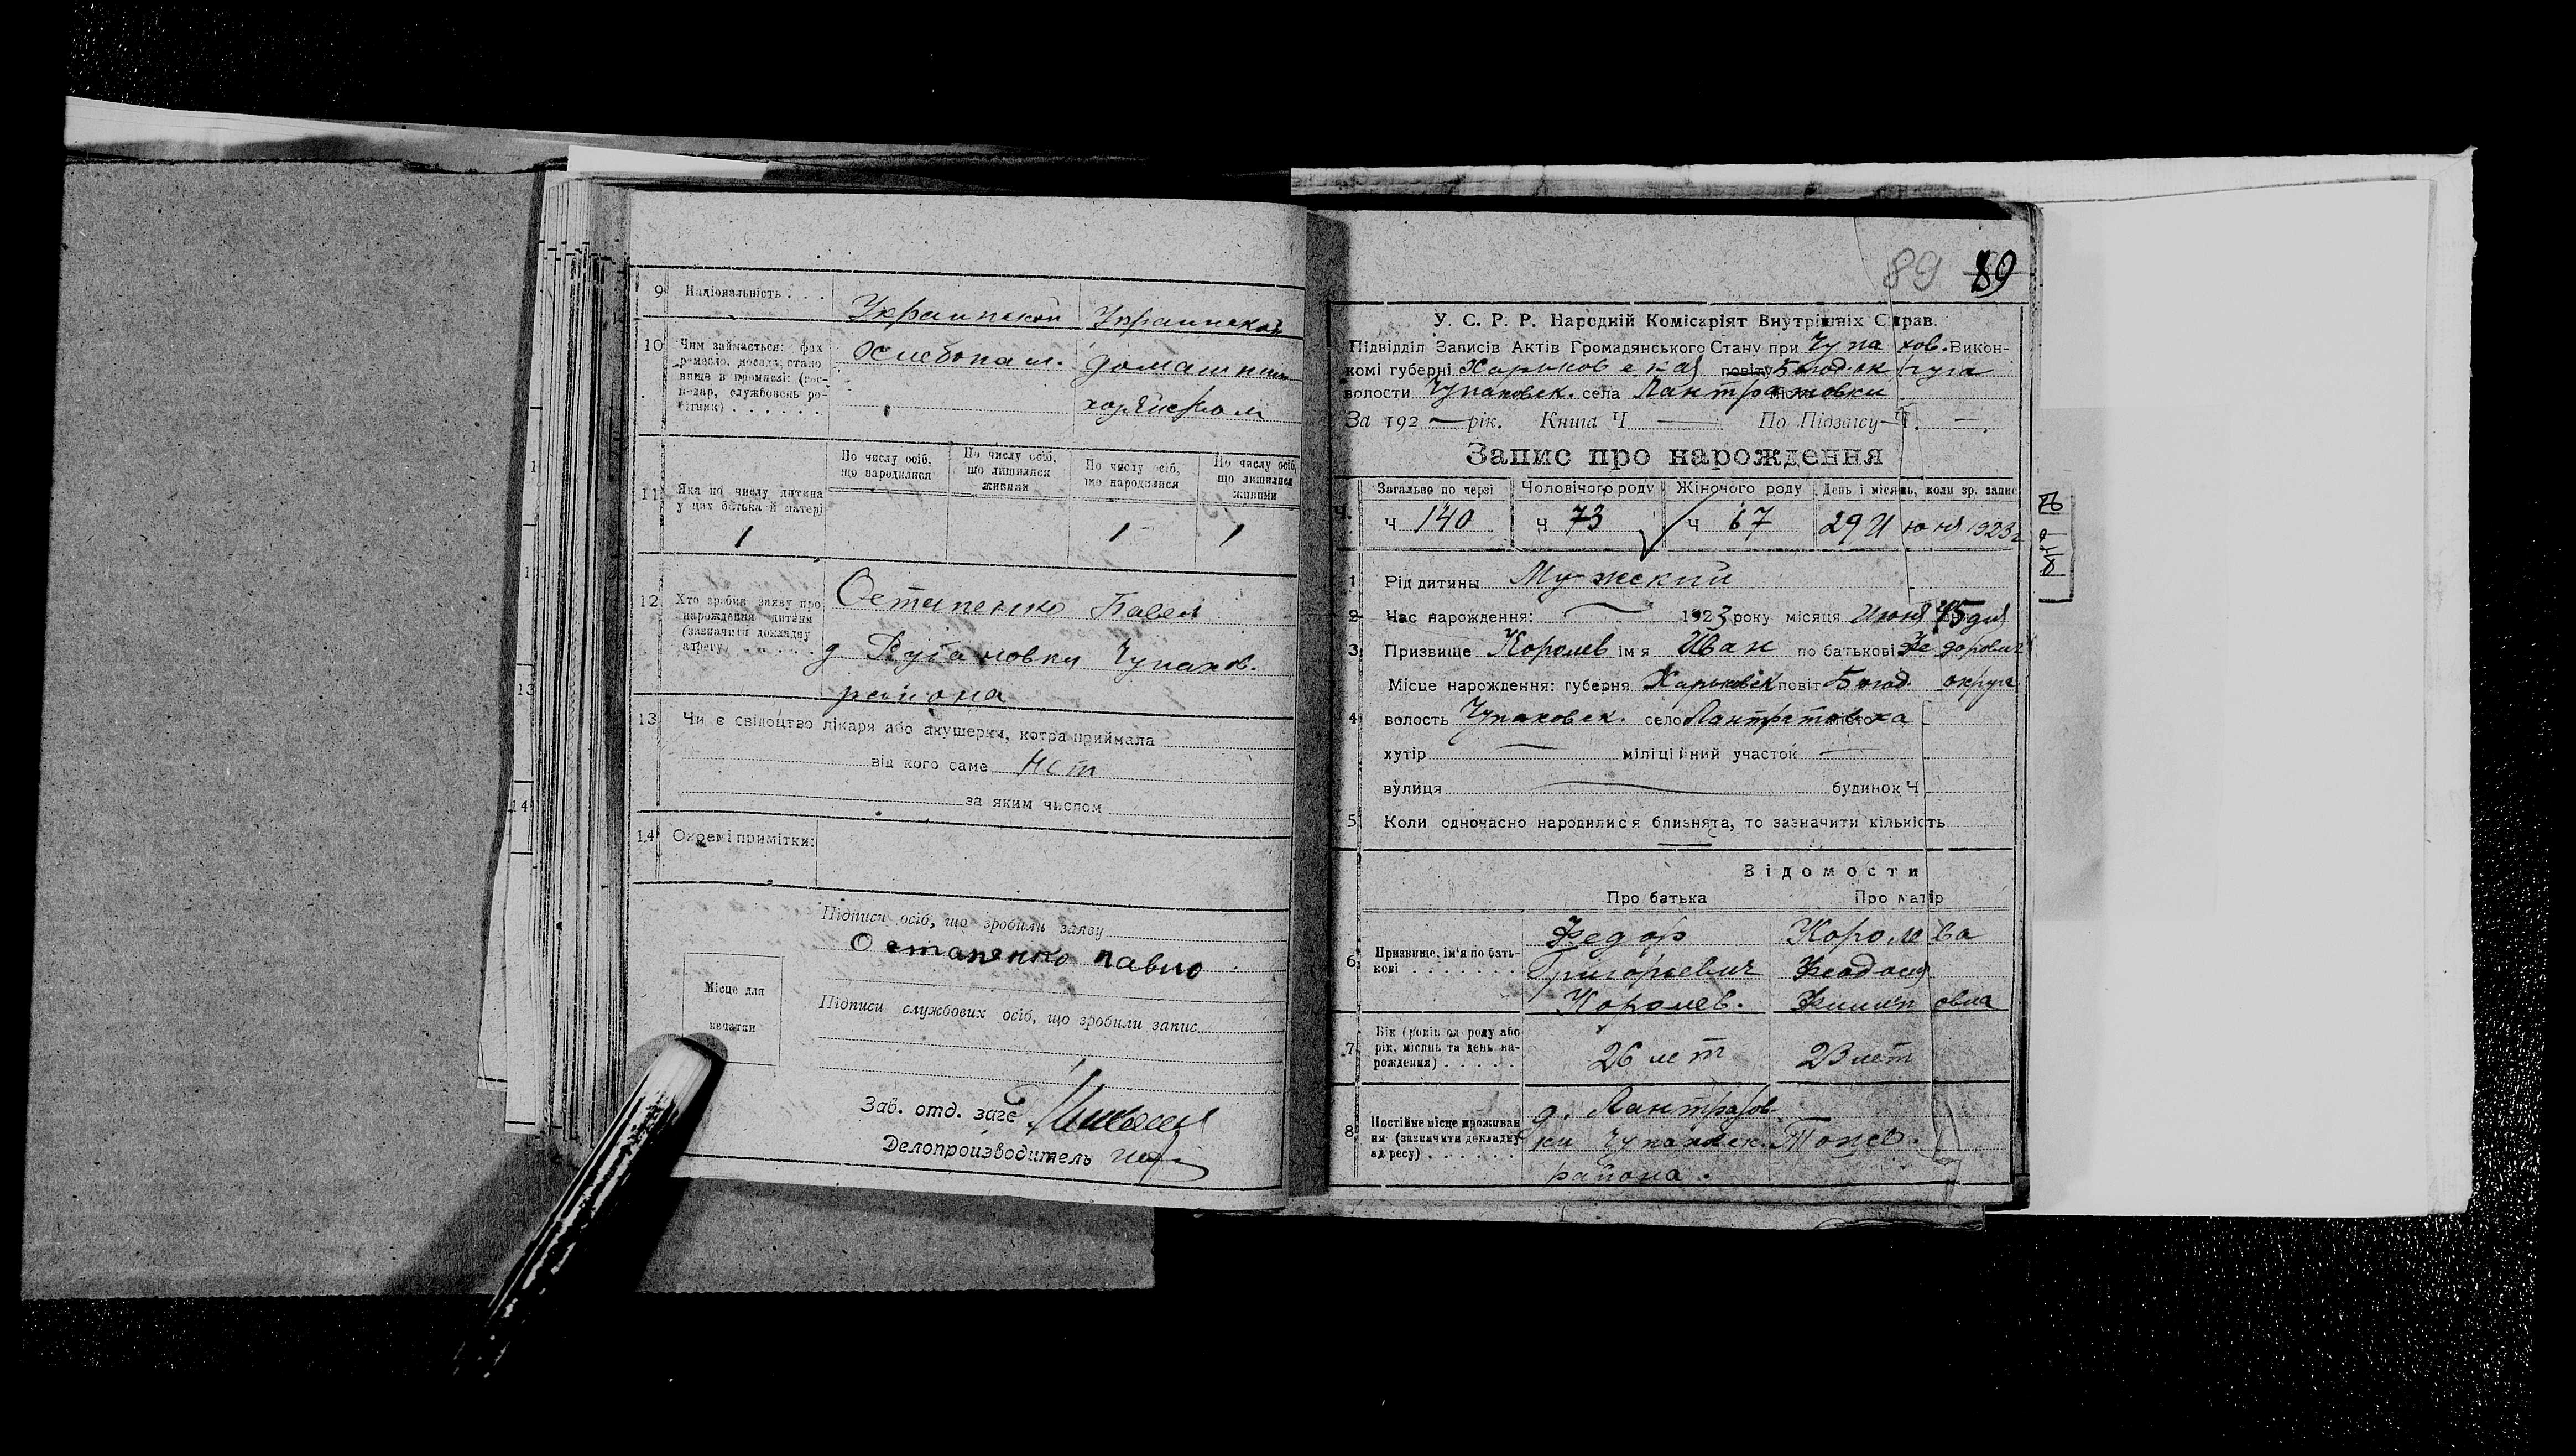 9 Національність . . . Украинской Украинской
10 Чим займається: фах
ремесло, посада, стано
вище в промислі: (гос-
подар, службовець ро-
бітник) . . . . . .
Хлебопаш. домашним
хозяйством
11 Яка по числу дитина
у цих батька й матері
1
По числу осіб, що народилися
По числу осіб, що лишилися живими
По числу осіб, що народилися
По числу осіб, що лишилися живими
1 1
12 Хто зробив заяву про
нарождення дитини
(зазначити докладну
адресу) . . . . . .
Остапенко Павел
района
13 Чи є свідоцтво лікаря або акушерки, котра приймала
від кого саме Нет
за яким числом
14 Окремі примітки:
Підписи осіб, що зробили заяву
Остапенко павло
Місце для
печатки
Підписи службових осіб, що зробили запис
Зав. отд. загс
Делопроизводитель
89 89
У. С. Р. Р. Народній Комісаріят Внутрішніх Справ.
Підвідділ Записів Актів Громадянського Стану при Чупахов. Викон-
комі губерні Харьковская повіту Богод. округа
волости Чупаховск. села Лантратовки
За 192 — рік. Книга Ч — По Підзагсу Ч. —
Запис про нарождення
Загально по черзі Чоловічого роду Жіночого роду День і місяць, коли зр. запис
Ч 140 Ч 73 Ч 67 29 Июня 1923 г
1 Рід дитины Мужский
2 Час нарождення: — 1923 року місяця Июня 15 дня
3 Призвище Королев ім'я Иван по батькові Федорович
Місце нарождення: губерня Харьковск повіт Богод. округа
4 волость Чупаховск. село Лантратовка
хутір — міліційний участок —
вулиця — будинок Ч
5 Коли одночасно народилися близнята, то зазначити кількість
—
Відомости
Про батька Про матір
6 Призвище, ім'я по бать-
кові . . . . . . .
Федор Королева
Григорьевич Феодосия
Королев. Филиповна
7 Вік (років од роду або
рік, місяць та день на-
рождення) . . . . .
26 лет 23 лет
8 Постійне місце проживан
ня (зазначити докладну
адресу) . . . . . .
д. Лантратов-
ки Чупаховск. Тоже.
района.